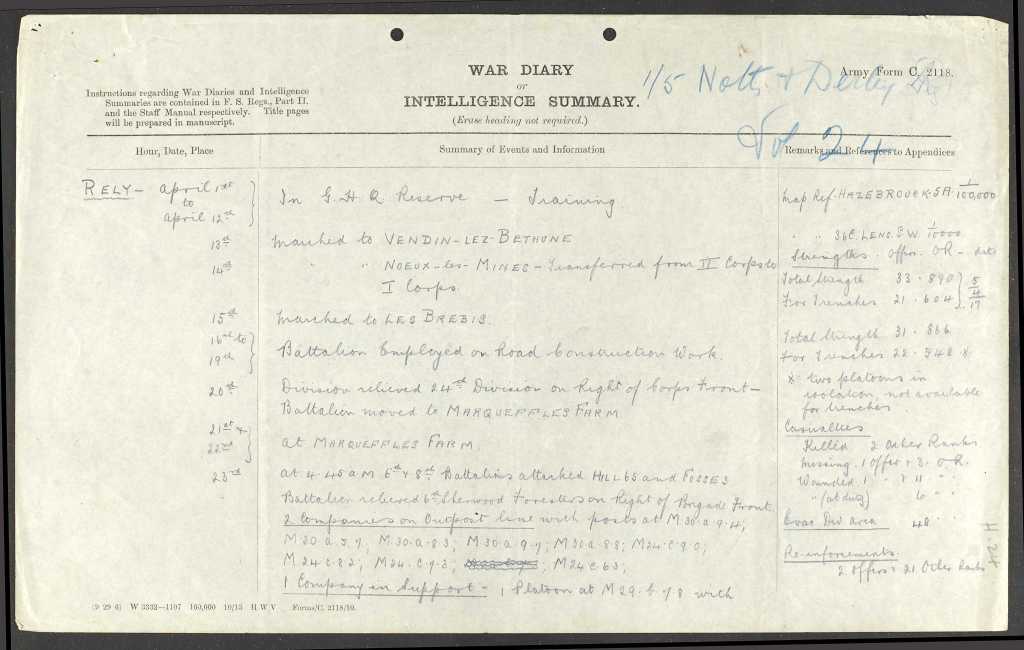 WAR DIARY
or
INTELLIGENCE SUMMARY.
(Erase heading not required.)
Army Form C. 2118.
1/5 Notts & Derby
Vol 24
Instructions regarding War Diaries and Intelligence
Summaries are contained in F. S. Regs., Part II.
and the Staff Manual respectively. Title pages
will be prepared in manuscript.
Hour, Date, Place
Summary of Events and Information
Remarks and References to Appendices
RELY - April 1st
to
April 12th
In G.H.Q. Reserve - Training
13th Marched to VENDIN-LEZ-BETHUNE
14th " " NOEUX-les-MINES - Transferred from II Corps to
I Corps.
15th Marched to LES BREBIS.
16th to
19th
Battalion Employed on Road Construction Work.
20th Division relieved 24th Division on Right of Corps Front -
Battalion moved to MARQUEFFLES FARM
21st &
22nd
At MARQUEFFLES FARM.
23rd At 4.45 a.m 6th & 8th Battalions attacked HILL 65 and FOSSES
Battalion relieved 6th Sherwood Foresters on Right of Brigade Front.
2 Companies on Outpost line with posts at M.30.a.9.4;
M.30.a.5.7, M.30.a.8.3; M.30.a.9.7; M.30.a.8.8; M24.c.9.0;
M.24.c.8.2; M24.c.9.3; M24c63;
1 Company in Support - 1 Platoon at M29.b.7.8 with
Map Ref. HAZEBROUCK.5A. 1/100,000
" " 36C. LENS. S.W. 1/10000
Strengths. Offrs. OR - date
Total Strength 33 . 890
For Trenches 21 . 604
5/4/17
Total Strength 31 . 866
For Trenches 22 . 548 x
x two platoons in
isolation, not available
for trenches.
Casualties
Killed 2 Other Ranks
Missing. 1 Offr & 3. O.R.
Wounded 1 " & 11 " "
" (at duty) 6 " "
Evac Div area 48 " "
Re-inforcements.
2 Offrs & 21 Other Ranks
(9 29 6) W 3332-1107 100,000 10/13 H W V Forms/C. 2118/10.